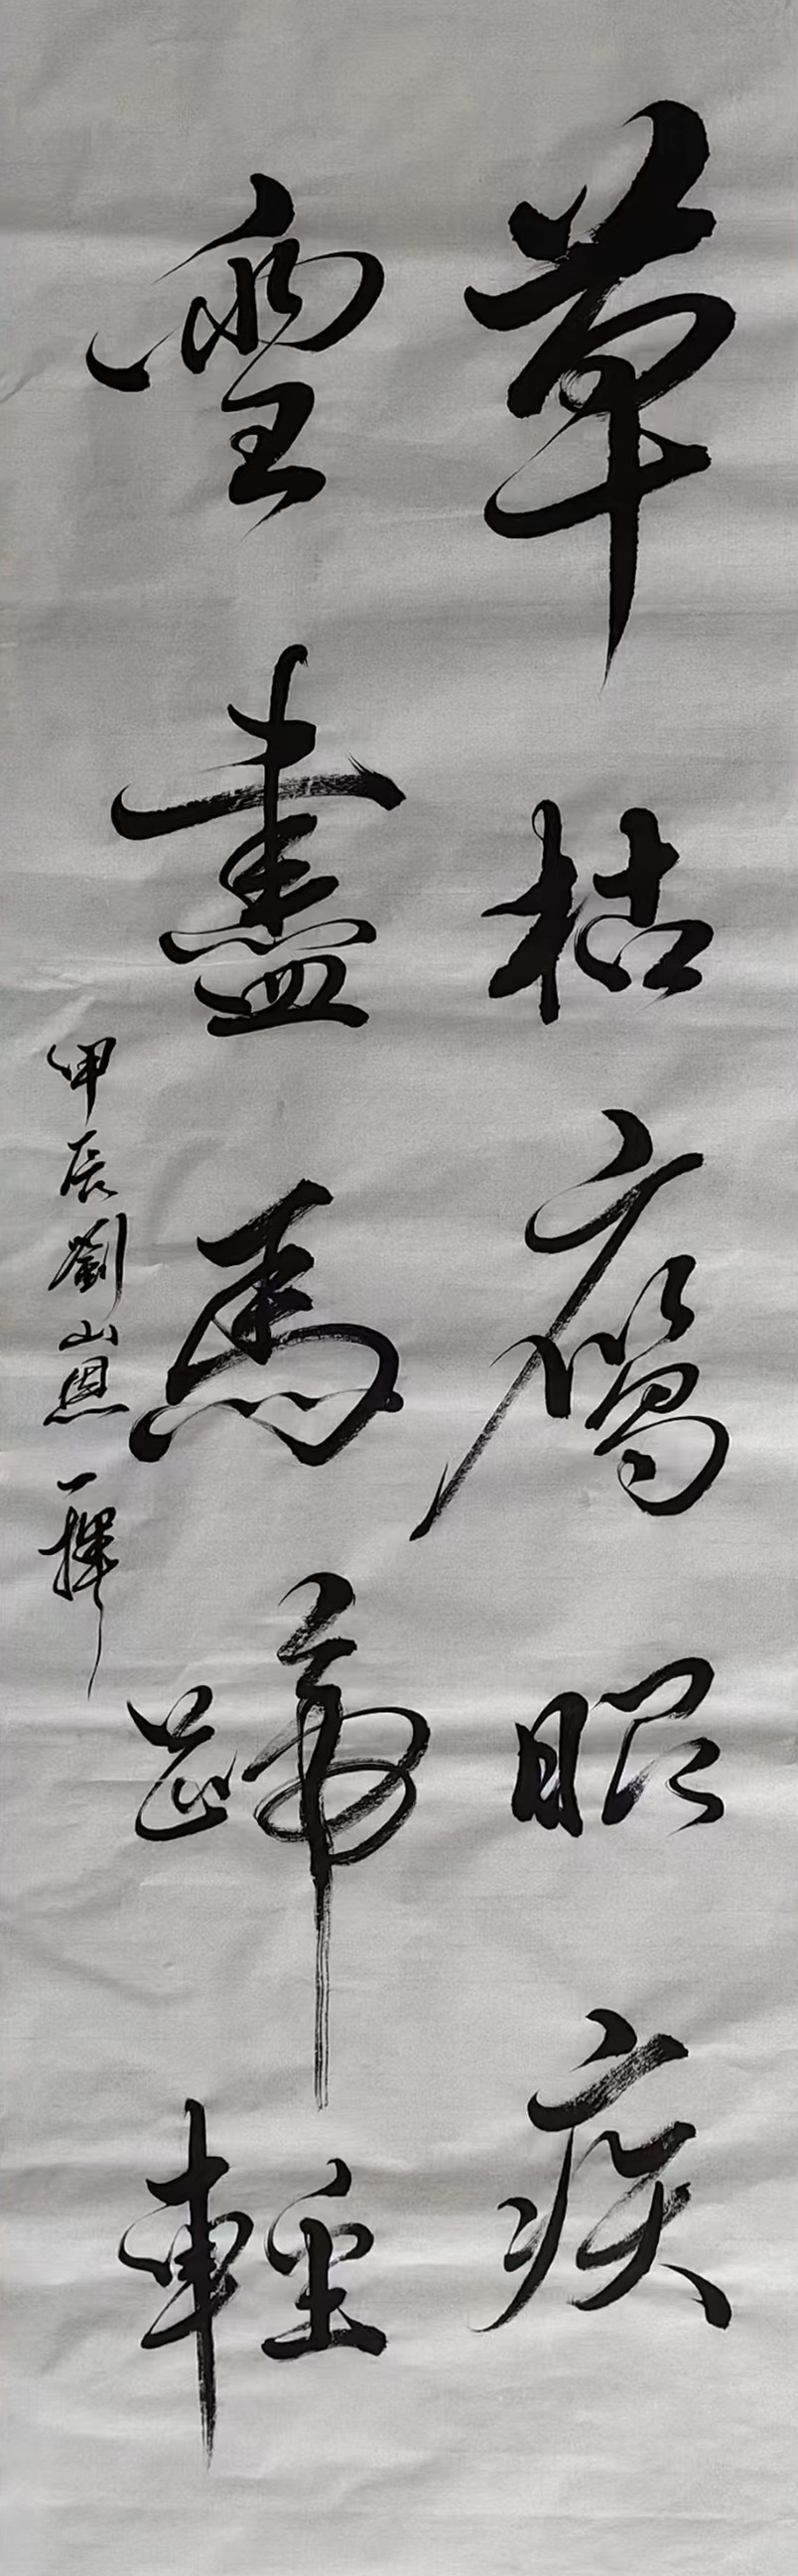 草枯鷹眼疾
雪盡馬蹄輕
甲辰劉山恩一揮